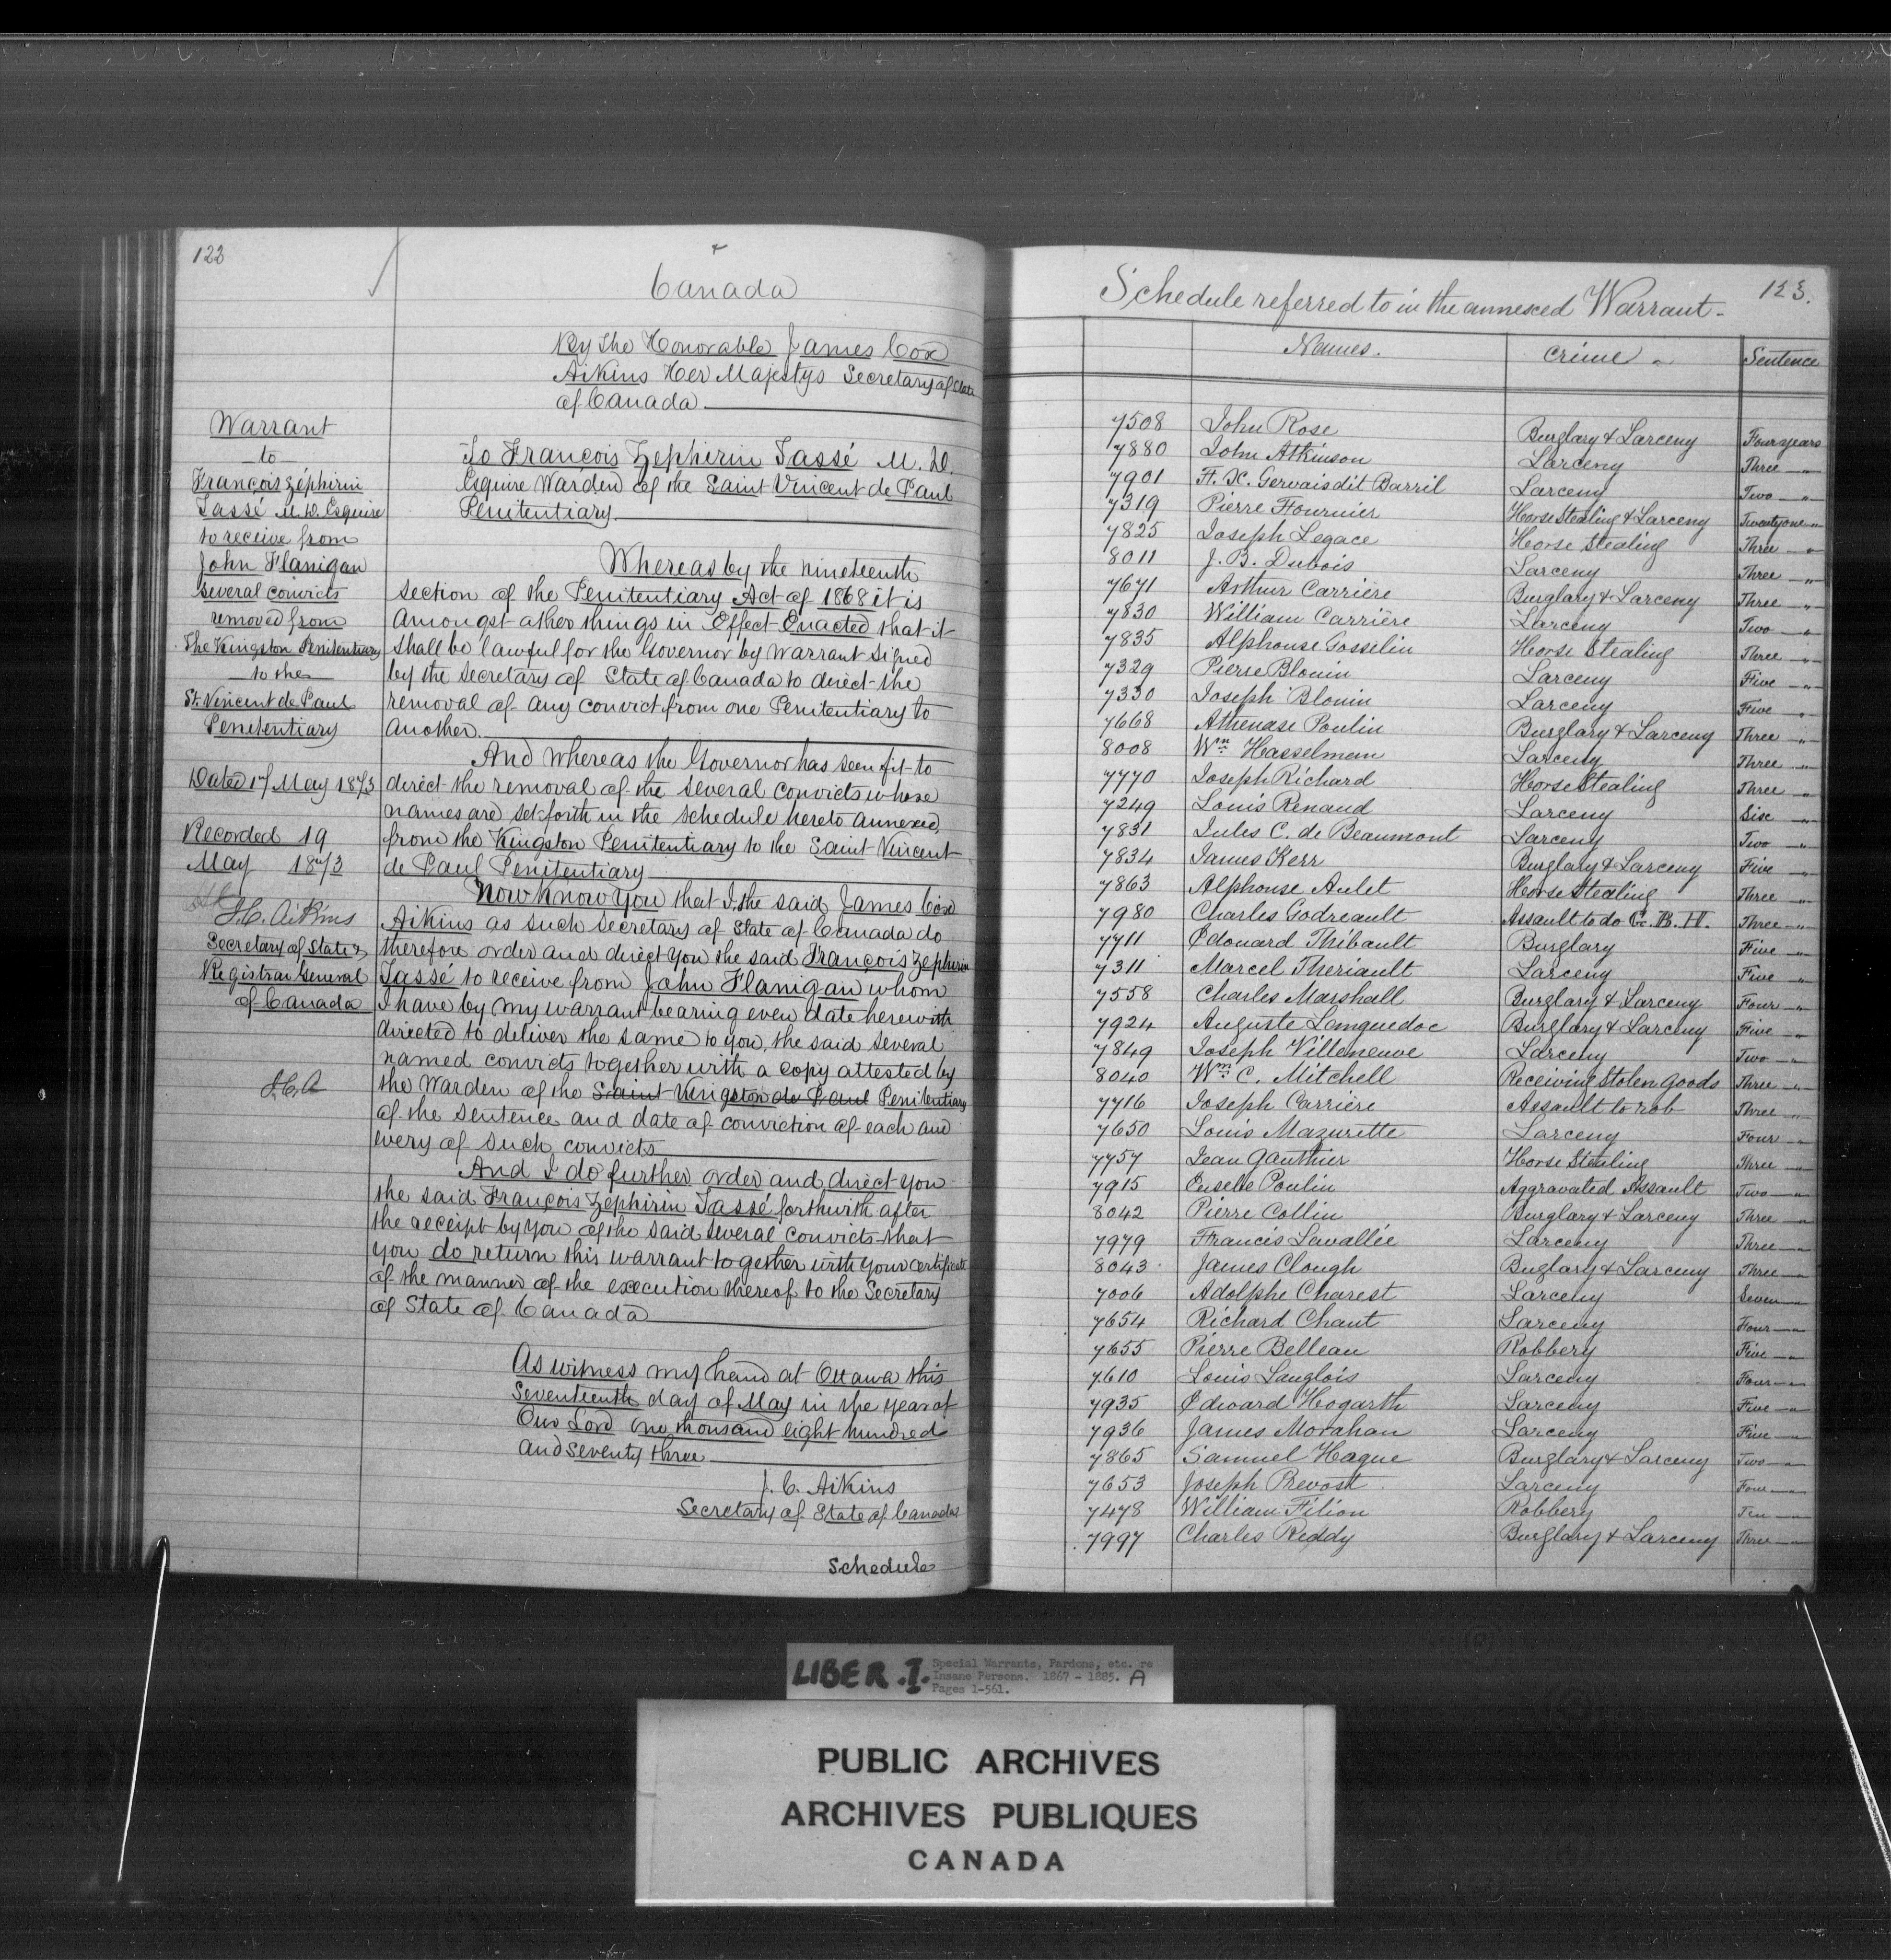 122
Canada
By the Honorable James Cox
Aikins Her Majestys Secretary of State
of Canada
Warrant
to
François Zéphirin
Tassé M.D. Esquire
to receive from
John Flanigan
several convicts
removed from
The Kingston Penitentiary
to the
St. Vincent de Paul
Penetentiary
Dated 17 May 1873
Recorded 19
May 1873
J.C. Aikins
Secretary of State &
Registrar General
of Canada
J.C.A
To François Zephirin Tassé M.D.
Esquire Warden of the Saint Vincent de Paul
Penitentiary
Whereas by the nineteenth
section of the Penitentiary Act of 1868 it is
amongst other things in Effect Enacted that it
shall be lawful for the Governor by warrant signed
by the Secretary of State of Canada to direct the
removal of any convict from one Penitentiary to
another.
And whereas the Governor has seen fit to
direct the removal of the several convicts whose
names are set forth in the schedule hereto annexed,
from the Kingston Penitentiary to the Saint Vincent
de Paul Penitentiary
Now know you that I, the said James Cox
Aikins as such Secretary of State of Canada do
therefore order and direct you the said François Zephirin
Tassé to receive from John Flanigan whom
I have by my warrant bearing even date herewith
directed to deliver the same to you, the said several
named convicts together with a copy attested by
the Warden of the Saint Kingston de Paul Penitentiary
of the sentence and date of conviction of each and
every of such convicts
And I do further order and direct you
the said François Zephirin Tassé forthwith after
the receipt by you of the said several convicts that
you do return this warrant together with your certificate
of the manner of the execution thereof to the Secretary
of State of Canada
As witness my hand at Ottawa this
Seventeenth day of May in the year of
Our Lord one thousand eight hundred
and seventy three
J. C. Aikins
Secretary of State of Canada
Schedule
123.
Schedule referred to in the annexed Warrant.
Names. Crime Sentence
7508 John Rose Burglary & Larceny Four years
7880 John Atkinson Larceny Three "
7901 F. X. Gervais dit Barril Larceny Two "
7319 Pierre Fournier Horse Stealing & Larceny Twentyone "
7825 Joseph Legace Horse Stealing Three "
8011 J. B. Dubois Larceny Three "
7671 Arthur Carriere Burglary & Larceny Three "
7830 William Carriere Larceny Two "
7835 Alphonse Gosselin Horse Stealing Three "
7329 Pierre Blouin Larceny Five "
7330 Joseph Blouin Larceny Five "
7668 Athenase Poulin Burglary & Larceny Three "
8008 Wm Hasselman Larceny Three "
7770 Joseph Richard Horse Stealing Three "
7249 Louis Renaud Larceny Six "
7831 Jules C. de Beaumont Larceny Two "
7834 James Kerr Burglary & Larceny Five "
7863 Alphonse Aulet Horse Stealing Three "
7980 Charles Godreault Assault to do G. B. H. Three "
7711 Edouard Thibault Burglary Five "
7311 Marcel Theriault Larceny Five "
7558 Charles Marshall Burglary & Larceny Four "
7924 Auguste Languedoc Burglary & Larceny Five "
7849 Joseph Villeneuve Larceny Two "
8040 Wm C. Mitchell Receiving Stolen Goods Three "
7716 Joseph Carriere Assault to rob Three "
7650 Louis Mazurette Larceny Four "
7757 Jean Gauthier Horse Stealing Three "
7915 Poulin Aggravated Assault Two "
8042 Pierre Collin Burglary & Larceny Three "
7979 Francis Lavallée Larceny Three "
8043 James Clough Buglary & Larceny Three "
7006 Adolphe Charest Larceny Seven "
7654 Richard Chaut Larceny Four "
7655 Pierre Belleau Robbery Five "
7610 Louis Langlois Larceny Four "
7935 Edward Hogarth Larceny Five "
7936 James Morahan Larceny Five "
7865 Samuel Hague Burglary & Larceny Two "
7653 Joseph Prevost Larceny Four "
7478 William Filion Robbery Ten "
7997 Charles Reddy Burglary & Larceny Three "
LIBER. I. Special Warrants, Pardons, etc. re
Insane Persons. 1867 - 1885. A
Pages 1-561.
PUBLIC ARCHIVES
ARCHIVES PUBLIQUES
CANADA